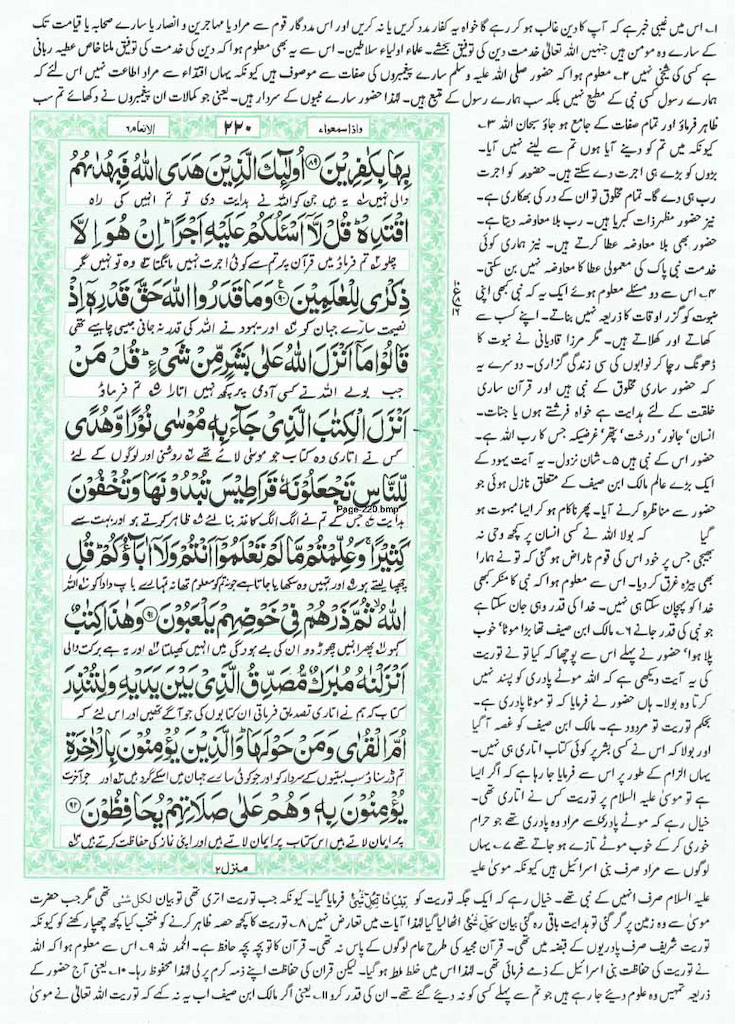 ۱۔ اس میں غیبی خبر ہے کہ آپ کا دین غالب ہو کر رہے گا خواہ یہ کفار مدد کریں یا نہ کریں اور اس مددگار قوم سے مراد یا مہاجرین و انصار یا سارے صحابہ یا قیامت تک
کے سارے وہ مومن ہیں جنہیں اللہ تعالیٰ خدمت دین کی توفیق بخشے۔ علماء اولیاء سلاطین۔ اس سے یہ بھی معلوم ہوا کہ دین کی خدمت کی توفیق ملنا خاص عطیہ ربانی
ہے کسی کی شیخی نہیں ۲۔ معلوم ہوا کہ حضور صلی اللہ علیہ وسلم سارے پیغمبروں کی صفات سے موصوف ہیں کیونکہ یہاں اقتداء سے مراد اطاعت نہیں اس لئے کہ
ہمارے رسول کسی نبی کے مطیع نہیں بلکہ سب ہمارے رسول کے متبع ہیں۔ لہٰذا حضور سارے نبیوں کے سردار ہیں۔ یعنی جو کمالات ان پیغمبروں نے دکھائے تم سب
ظاہر فرماؤ اور تمام صفات کے جامع ہو جاؤ سبحان اللہ ۳۔
کیونکہ میں تم کو دینے آیا ہوں تم سے لینے نہیں آیا۔
بڑوں کو بڑے ہی اجرت دے سکتے ہیں۔ حضور کو اجرت
رب ہی دے گا۔ تمام مخلوق تو ان کے در کی بھکاری ہے۔
نیز حضور مظہر ذات کبریا ہیں۔ رب بلا معاوضہ دیتا ہے۔
حضور بھی بلا معاوضہ عطا کرتے ہیں۔ نیز ہماری کوئی
خدمت نبی پاک کی معمولی عطا کا معاوضہ نہیں بن سکتی۔
۴۔ اس سے دو مسئلے معلوم ہوئے ایک یہ کہ نبی کبھی اپنی
نبوت کو گزر اوقات کا ذریعہ نہیں بناتے۔ اپنے کسب سے
کھاتے اور کھلاتے ہیں۔ مگر مرزا قادیانی نے نبوت کا
ڈھونگ رچا کر نوابوں کی سی زندگی گزاری۔ دوسرے یہ
کہ حضور ساری مخلوق کے نبی ہیں اور قرآن ساری
خلقت کے لئے ہدایت ہے خواہ فرشتے ہوں یا جنات۔
انسان' جانور' درخت' پتھر' غرضیکہ جس کا رب اللہ ہے۔
حضور اس کے نبی ہیں ۵۔ شان نزول۔ یہ آیت یہود کے
ایک بڑے عالم مالک ابن صیف کے متعلق نازل ہوئی جو
حضور سے مناظرہ کرنے آیا۔ پھر ناکام ہو کر ایسا مبہوت ہو
گیا کہ بولا اللہ نے کسی انسان پر کچھ وحی نہ
بھیجی جس پر خود اس کی قوم ناراض ہو گئی کہ تو نے ہمارا
بھی بیڑہ غرق کر دیا۔ اس سے معلوم ہوا کہ نبی کا منکر کبھی
خدا کو پہچان سکتا ہی نہیں۔ خدا کی قدر وہی جان سکتا ہے
جو نبی کی قدر جانے ۶۔ مالک ابن صیف تھا بڑا موٹا' خوب
پلا ہوا' حضور نے پہلے اس سے پوچھا کہ کیا تو نے توریت
کی یہ آیت دیکھی ہے کہ اللہ موٹے پادری کو پسند نہیں
کرتا وہ بولا۔ ہاں حضور نے فرمایا کہ تو موٹا پادری ہے۔
بحکم توریت تو مردود ہے۔ مالک ابن صیف کو غصہ آ گیا
اور بولا کہ اس نے کسی بشر پر کوئی کتاب اتاری ہی نہیں۔
یہاں الزام کے طور پر اس سے فرمایا جا رہا ہے کہ اگر ایسا
ہے تو موسیٰ علیہ السلام پر توریت کس نے اتاری تھی۔
خیال رہے کہ موٹے پادری سے مراد وہ پادری تھے جو حرام
خوری کر کے خوب موٹے تازے ہو جاتے تھے ۷۔ یہاں
لوگوں سے مراد صرف بنی اسرائیل ہیں کیونکہ موسیٰ علیہ
واذا سمعوا۷ ۲۲۰ الانعام۶
بِهَا بِكٰفِرِيْنَ ﴿۸۹﴾ اُولٰٓئِكَ الَّذِيْنَ هَدَى اللّٰهُ فَبِهُدٰىهُمُ
والی نہیں یہ ہیں جن کو اللہ نے ہدایت دی تو تم انہیں کی راہ
اقْتَدِهْ ؕ قُلْ لَّاۤ اَسْـَٔلُكُمْ عَلَيْهِ اَجْرًا ؕ اِنْ هُوَ اِلَّا
چلو تم فرماؤ میں قرآن پر تم سے کوئی اجرت نہیں مانگتا وہ تو نہیں مگر
ذِكْرٰى لِلْعٰلَمِيْنَ ﴿۹۰﴾ وَمَا قَدَرُوا اللّٰهَ حَقَّ قَدْرِهٖۤ اِذْ
نصیحت سارے جہان کو اور یہود نے اللہ کی قدر نہ جانی جیسی چاہیے تھی
قَالُوْا مَاۤ اَنْزَلَ اللّٰهُ عَلٰى بَشَرٍ مِّنْ شَىْءٍ ؕ قُلْ مَنْ
جب بولے اللہ نے کسی آدمی پر کچھ نہیں اتارا تم فرماؤ
اَنْزَلَ الْكِتٰبَ الَّذِىْ جَآءَ بِهٖ مُوْسٰى نُوْرًا وَّهُدًى
کس نے اتاری وہ کتاب جو موسیٰ لائے تھے روشنی اور لوگوں کے لئے
لِّلنَّاسِ تَجْعَلُوْنَهٗ قَرَاطِيْسَ تُبْدُوْنَهَا وَتُخْفُوْنَ
ہدایت جس کے تم نے الگ الگ کاغذ بنا لئے ظاہر کرتے ہو اور بہت سے
Page-220.bmp
كَثِيْرًا ۚ وَعُلِّمْتُمْ مَّا لَمْ تَعْلَمُوْۤا اَنْتُمْ وَلَاۤ اٰبَآؤُكُمْ ؕ قُلِ
چھپا لیتے ہو اور تمہیں وہ سکھایا جاتا ہے جو نہ تم کو معلوم تھا نہ تمہارے باپ دادا کو اللہ
اللّٰهُ ۙ ثُمَّ ذَرْهُمْ فِىْ خَوْضِهِمْ يَلْعَبُوْنَ ﴿۹۱﴾ وَهٰذَا كِتٰبٌ
کہو پھر انہیں چھوڑ دو ان کی بے ہودگی میں انہیں کھیلتا اور یہ ہے برکت والی
اَنْزَلْنٰهُ مُبٰرَكٌ مُّصَدِّقُ الَّذِىْ بَيْنَ يَدَيْهِ وَلِتُنْذِرَ
کتاب کہ ہم نے اتاری تصدیق فرماتی ان کتابوں کی جو آگے تھیں اور اس لئے کہ
اُمَّ الْقُرٰى وَمَنْ حَوْلَهَا ؕ وَالَّذِيْنَ يُؤْمِنُوْنَ بِالْاٰخِرَةِ
تم ڈر سناؤ سب بستیوں کے سردار کو اور جو کوئی سارے جہان میں اسکے گرد ہیں اور جو آخرت
يُؤْمِنُوْنَ بِهٖ وَهُمْ عَلٰى صَلَاتِهِمْ يُحَافِظُوْنَ ﴿۹۲﴾
پر ایمان لاتے ہیں اس کتاب پر ایمان لاتے ہیں اور اپنی نماز کی حفاظت کرتے ہیں
منزل۲
علیہ السلام صرف انہیں کے نبی تھے۔ خیال رہے کہ ایک جگہ توریت کو فرمایا گیا۔ کیونکہ جب توریت اتری تھی تو بیان لکل شئی تھی مگر جب حضرت
موسیٰ سے وہ زمین پر گر گئی تو ہدایت باقی رہ گئی بیان اٹھا لیا گیا لہٰذا آیات میں تعارض نہیں ۸۔ توریت کا کچھ حصہ ظاہر کرنے کو منتخب کیا کچھ چھپا رکھنے کو کیونکہ
توریت شریف صرف پادریوں کے قبضہ میں تھی۔ قرآن مجید کی طرح عام لوگوں کے پاس نہ تھی۔ قرآن کا تو بچہ بچہ حافظ ہے۔ الحمد للہ ۹۔ اس سے معلوم ہوا کہ اللہ
نے توریت کی حفاظت بنی اسرائیل کے ذمے فرمائی تھی۔ لہٰذا اس میں خلط ملط ہو گیا۔ لیکن قران کی حفاظت اپنے ذمہ کرم پر لی لہٰذا محفوظ رہا۔ ۱۰۔ یعنی آج حضور کے
ذریعہ تمہیں وہ علوم دیئے جا رہے ہیں جو تم سے پہلے کسی کو نہ دیئے گئے تھے۔ ان کی قدر کرو ۱۱۔ یعنی اگر مالک ابن صیف اب یہ نہ کہے کہ توریت اللہ تعالیٰ نے موسیٰ